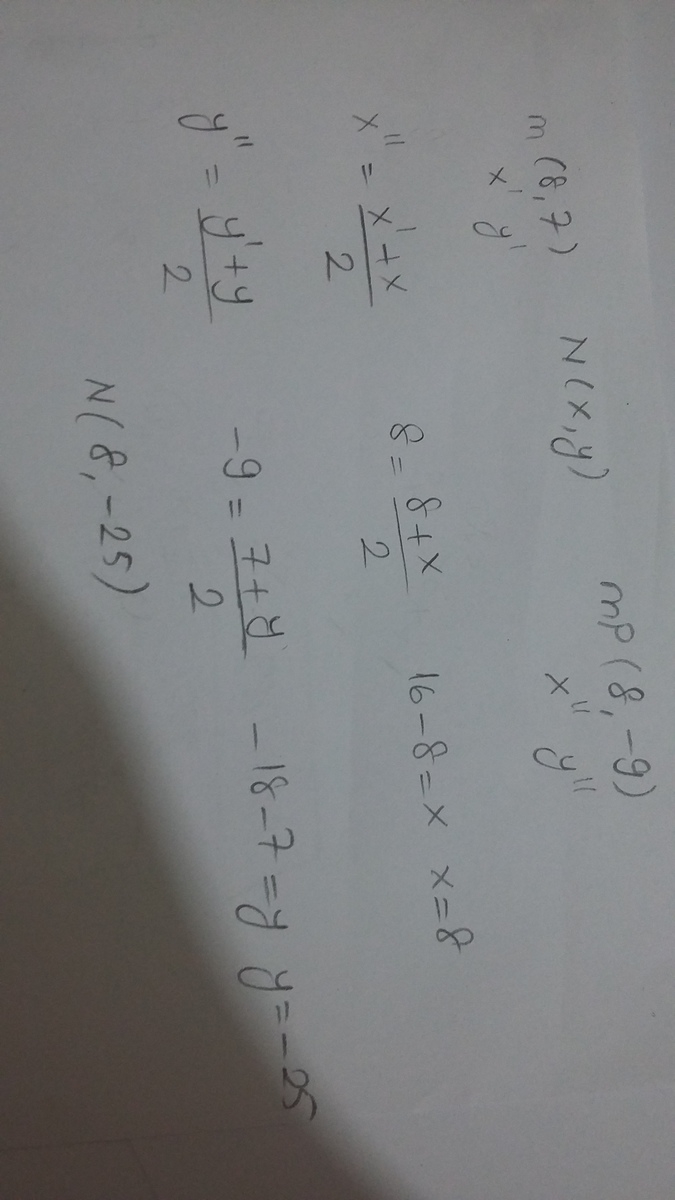 m(8,7) N(x,y) mp(8,-9)
x' y' x'' y''
x'' = x'+x / 2 8 = 8+x / 2 16-8=x x=8
y'' = y'+y / 2 -9 = 7+y / 2 -18-7=y y=-25
N(8,-25)